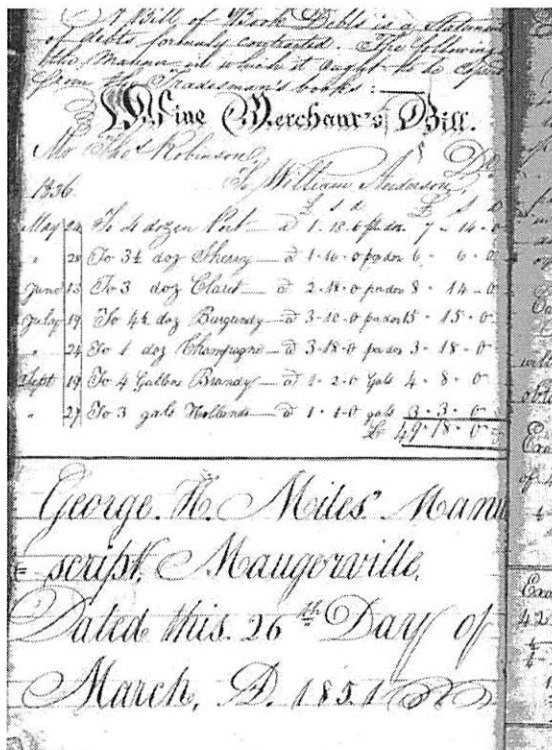 A Bill of Book Debts is a Statement
of debts formerly contracted. The following
the Manner in which it ought to be copied
from the Tradesman's books :
Wine Merchant's Bill.
Mr Thos Robinson, Dr
1836. To William Anderson,
£ s d £ s d
May 24 To 4 dozen Port — @ 1-18-6 pr doz 7-14-0
" 28 To 3½ doz Sherry — @ 1-16-0 pr doz 6-6-0
June 13 To 3 doz Claret — @ 2-18-0 pr doz 8-14-0
July 19 To 4½ doz Burgundy — @ 3-10-0 pr doz 15-15-0
" 24 To 1 doz Champagne — @ 3-18-0 pr doz 3-18-0
Sept 19 To 4 Gallons Brandy — @ 1-2-0 gals 4-8-0
" 27 To 3 gals Hollands — @ 1-1-0 gals 3-3-0
£ 49-18-0
George. H. Miles" Manu
script, Maugerville,
Dated this. 26th Day of
March, A. 1851